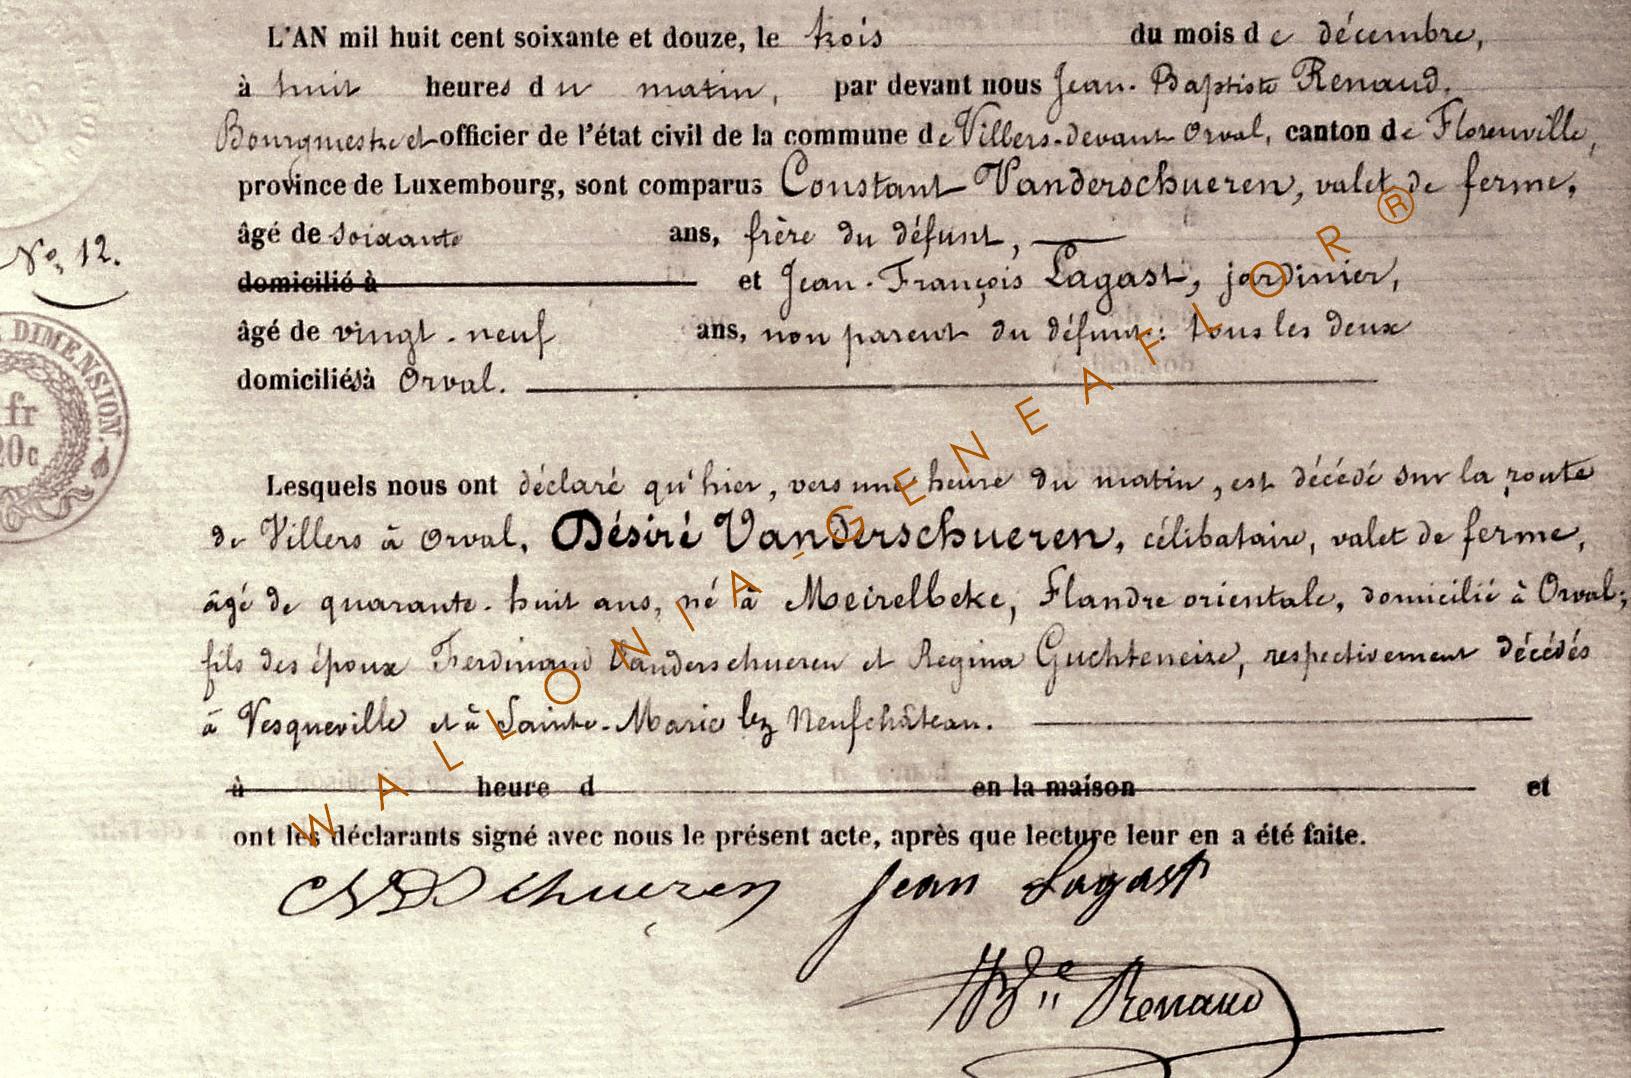 L'AN mil huit cent soixante et douze, le trois du mois de décembre,
à huit heures du matin, par devant nous Jean-Baptiste Renaud,
Bourgmestre et officier de l'état civil de la commune de Villers-devant Orval, canton de Florenville,
province de Luxembourg, sont comparus Constant Vanderschueren, valet de ferme,
âgé de soixante ans, frère du défunt,
domicilié à et Jean-François Lagast, jardinier,
No. 12.
âgé de vingt-neuf ans, non parent du défunt: tous les deux
domiciliés à Orval.
DIMENSION.
fr
20c
Lesquels nous ont déclaré qu'hier, vers une heure du matin, est décédé sur la route
de Villers à Orval, Désiré Vanderschueren, célibataire, valet de ferme,
âgé de quarante-huit ans, né à Meirelbeke, Flandre orientale, domicilié à Orval;
fils des époux Ferdinand Vanderschueren et Regina Guchteneire, respectivement décédés
à Vesqueville et à Sainte-Marie lez Neufchâteau.
à heure d en la maison et
ont les déclarants signé avec nous le présent acte, après que lecture leur en a été faite.
Jean Lagast
Renaud
WALLONIA-GENEAFLOR®